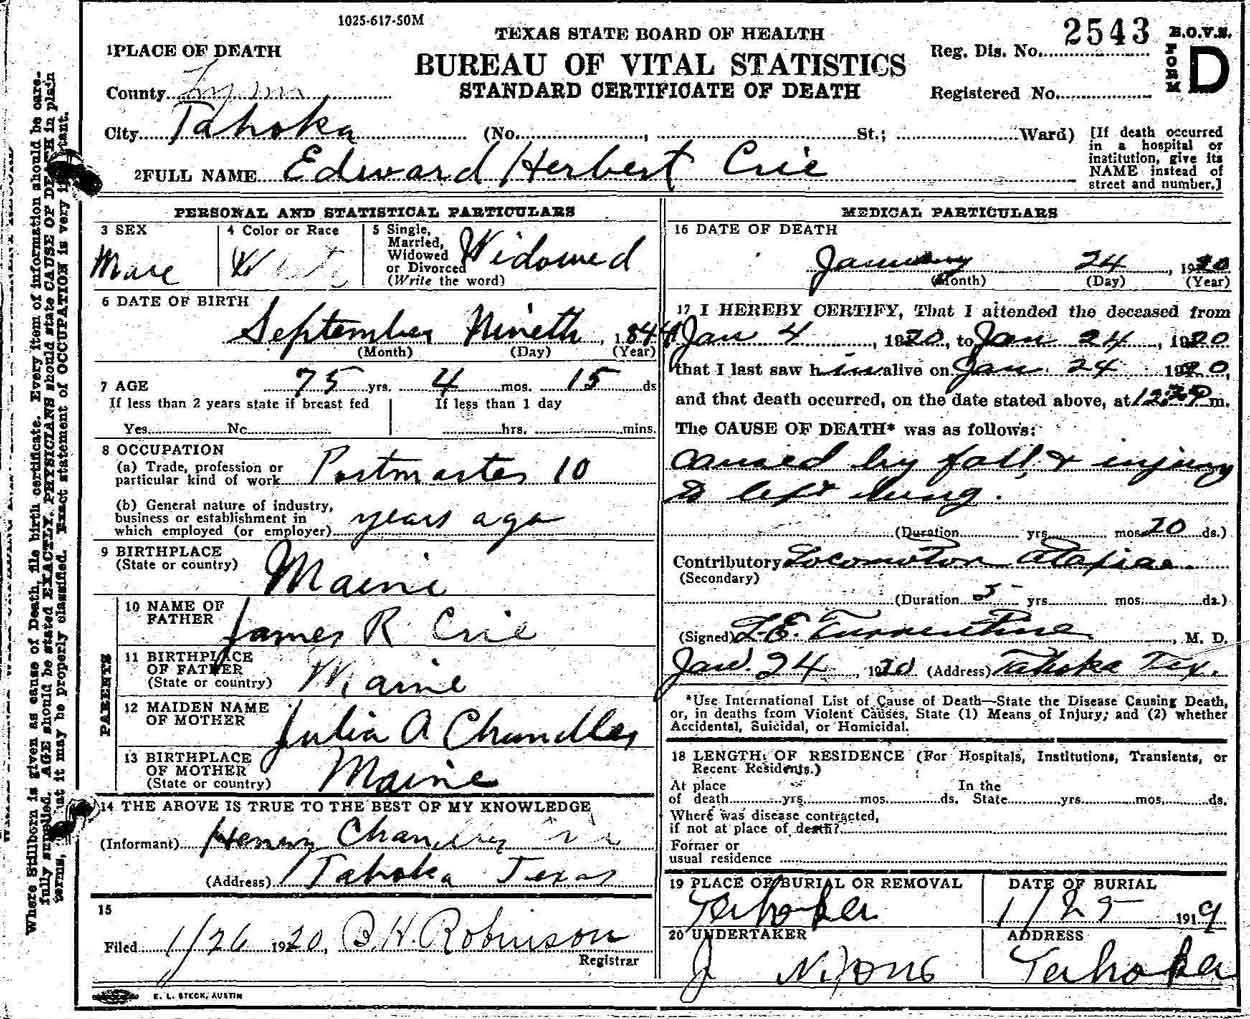 1025-617-50M
TEXAS STATE BOARD OF HEALTH
BUREAU OF VITAL STATISTICS
STANDARD CERTIFICATE OF DEATH
Reg. Dis. No. 2543
Registered No.
B.O.V.S.
FORM D
1 PLACE OF DEATH
County Lynn
City Tahoka (No. , St.; Ward)
[If death occurred
in a hospital or
institution, give its
NAME instead of
street and number.]
2 FULL NAME Edward Herbert Crie
PERSONAL AND STATISTICAL PARTICULARS
3 SEX
Male
4 Color or Race
White
5 Single,
Married,
Widowed
or Divorced
(Write the word)
Widowed
6 DATE OF BIRTH
September Nineth, 1844
(Month) (Day) (Year)
7 AGE
75 yrs. 4 mos. 15 ds
If less than 2 years state if breast fed
Yes No
If less than 1 day
hrs. mins.
8 OCCUPATION
(a) Trade, profession or
particular kind of work Postmaster 10
(b) General nature of industry,
business or establishment in
which employed (or employer) years ago
9 BIRTHPLACE
(State or country)
Maine
PARENTS
10 NAME OF
FATHER
James R Crie
11 BIRTHPLACE
OF FATHER
(State or country)
Maine
12 MAIDEN NAME
OF MOTHER
Julia A Chandler
13 BIRTHPLACE
OF MOTHER
(State or country)
Maine
14 THE ABOVE IS TRUE TO THE BEST OF MY KNOWLEDGE
(Informant) Henry Chandler Crie
(Address) Tahoka Texas
15
Filed 1/26 1920, B.H. Robinson
Registrar
E. L. STECK, AUSTIN
MEDICAL PARTICULARS
16 DATE OF DEATH
January 24, 1920
(Month) (Day) (Year)
17 I HEREBY CERTIFY, That I attended the deceased from
Jan 4, 1920, to Jan 24, 1920
that I last saw him alive on Jan. 24 1920,
and that death occurred, on the date stated above, at m.
The CAUSE OF DEATH* was as follows:
Caused by fall & injury
to left lung.
(Duration yrs. mos. 20 ds.)
Contributory Locomotor ataxia.
(Secondary)
(Duration 5 yrs. mos. ds.)
(Signed) L.E. Turrentine, M. D.
Jan. 24, 1920 (Address) Tahoka Tex.
*Use International List of Cause of Death—State the Disease Causing Death,
or, in deaths from Violent Causes, State (1) Means of Injury; and (2) whether
Accidental, Suicidal, or Homicidal.
18 LENGTH OF RESIDENCE (For Hospitals, Institutions, Transients, or
Recent Residents.)
At place
of death yrs. mos. ds.
In the
State yrs. mos. ds.
Where was disease contracted,
if not at place of death?
Former or
usual residence
19 PLACE OF BURIAL OR REMOVAL
Tahoka
DATE OF BURIAL
1/25 1919
20 UNDERTAKER
J
ADDRESS
Tahoka
Where Stillborn is given as cause of Death, file birth certificate. Every item of information should be care-
fully supplied. AGE should be stated EXACTLY. PHYSICIANS should state CAUSE OF DEATH in plain
terms, that it may be properly classified. Exact statement of OCCUPATION is very important.